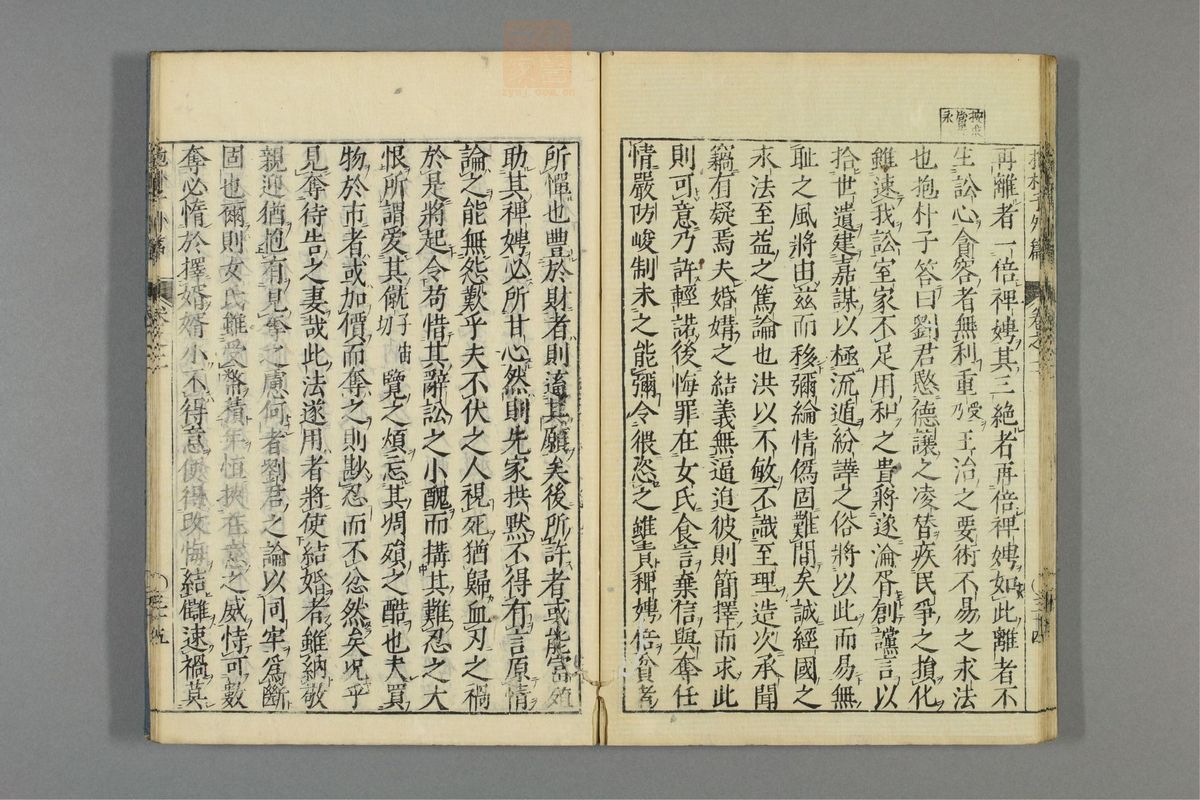 再離者一倍裨娉其三絕者再倍裨娉如此離者不
生訟心貪吝者無利重受乃王治之要術不易之求法
也抱朴子答曰劉君愍德讓之凌替疾民爭之損化
雖速我訟室家不足用和之貴將遂淪胥創讜言以
拾世遺建嘉謀以極流遁紛譁之俗將以此而易無
耻之風將由茲而移彌綸情僞固難間矣誠經國之
永法至益之篤論也洪以不敏不識至理造次承聞
竊有疑焉夫婚媾之結義無逼迫彼則簡擇而求此
則可意乃許輕諾後悔罪在女氏食言棄信與奪任
情嚴防峻制未之能彌令猥恣之唯責裨娉倍貧者
所憚也豊於財者則適其願矣後所許者或能富殖
助其裨娉必所甘心然則先家拱默不得有言原情
論之能無怨歎乎夫不伏之人視死猶歸血刃之禍
於是將起令苟惜其辭訟之小醜而搆其難忍之大
恨所謂愛其僦子由切覽之煩忘其凋殞之酷也夫買
物於市者或加價而奪之則尠忍而不忿然矣况乎
見奪待告之妻哉此法遂用者將使結婚者雖納敬
親迎猶抱有見奪之慮何者劉君之論以同牢爲斷
固也爾則女氏雖受幣積年恒挾在意之威恃可數
奪必惰於擇婚婿小不得意便得改悔結讎速禍莫